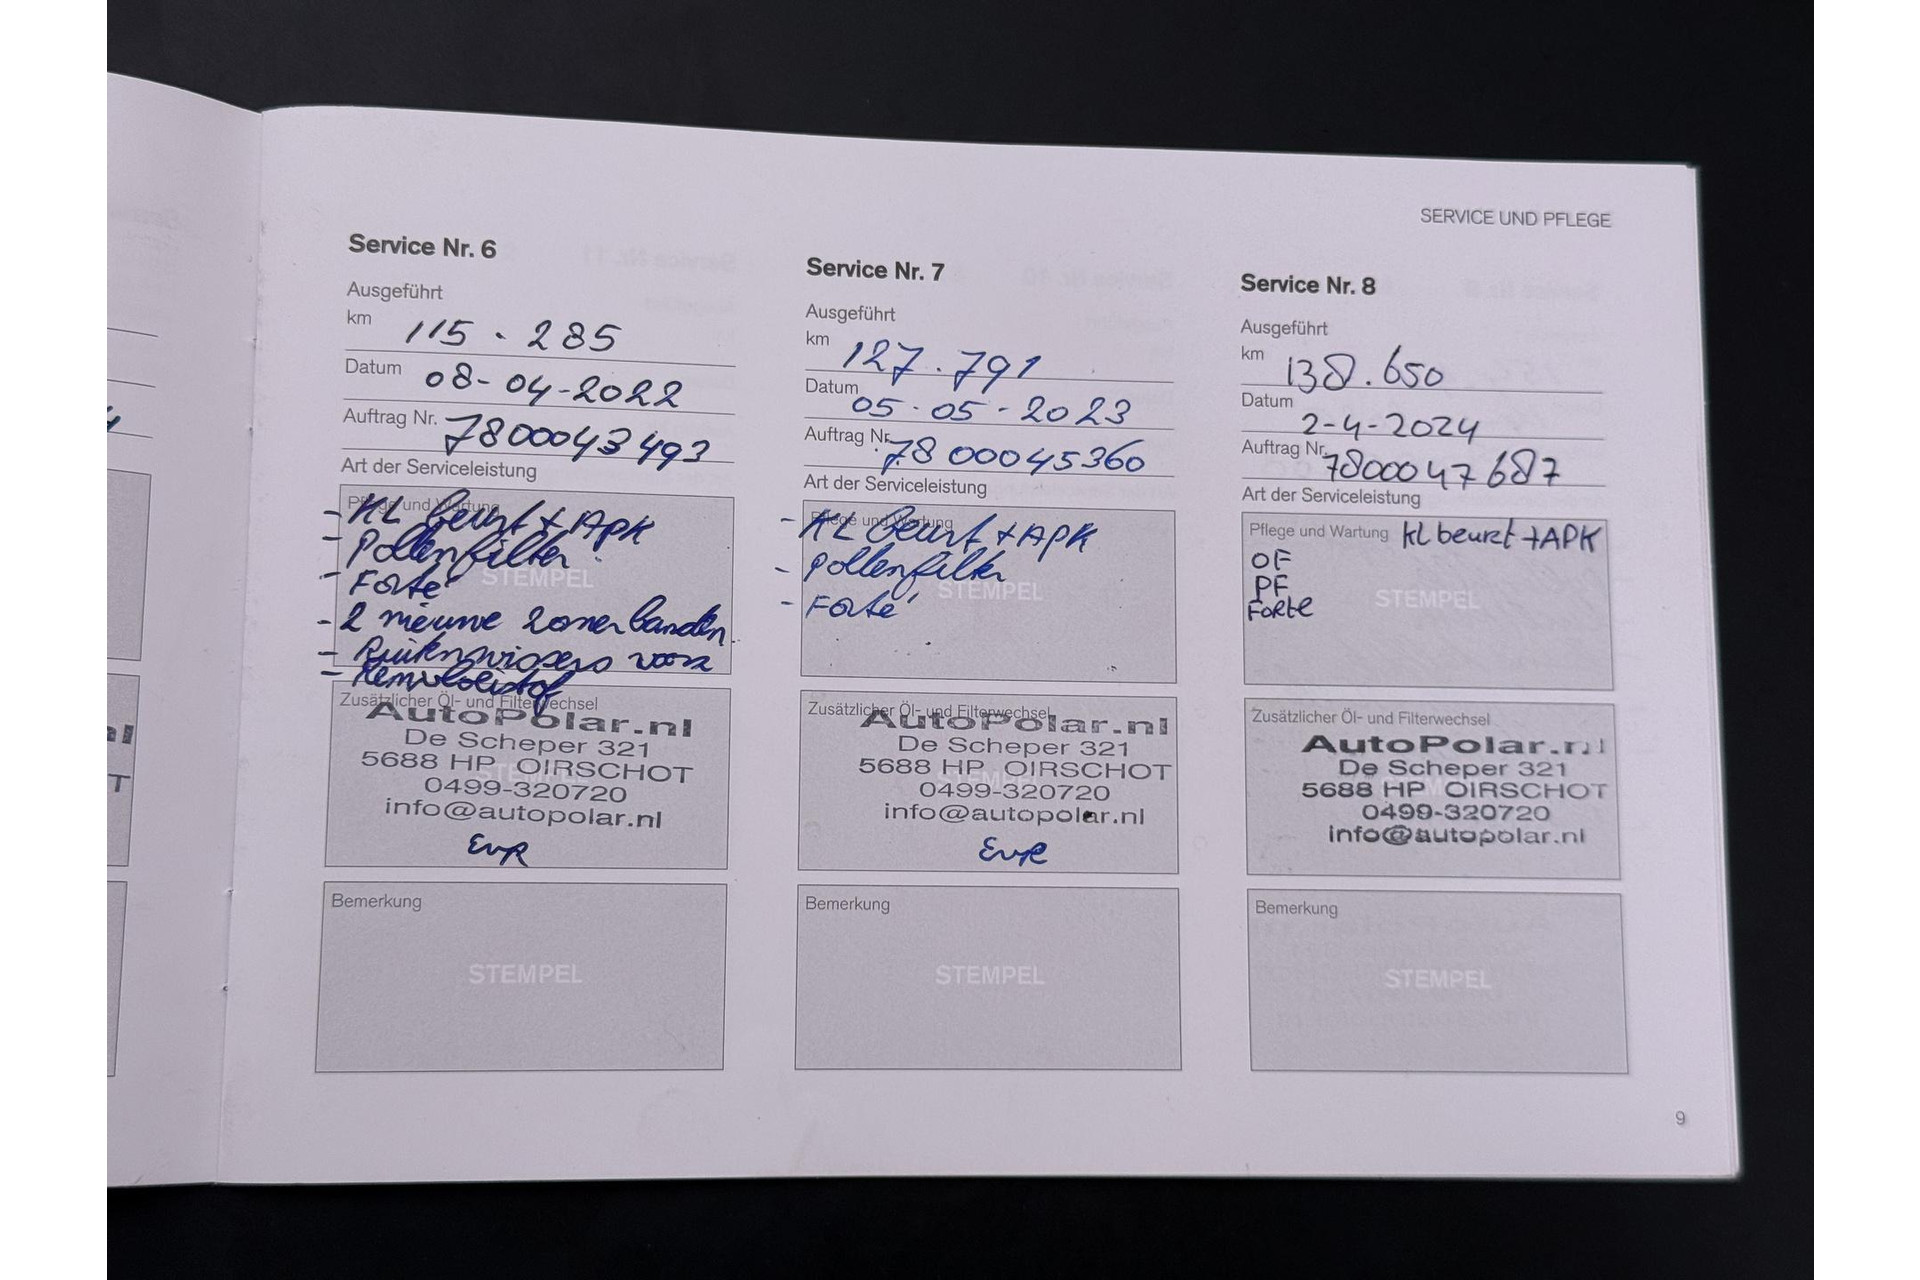 SERVICE UND PFLEGE
Service Nr. 6
Ausgeführt
km 115.285
Datum 08-04-2022
Auftrag Nr. 7800043493
Art der Serviceleistung
Pflege und Wartung
- KL beurt + APK
- Pollenfilter
- Forté
- 2 nieuwe zomerbanden
- Ruitenwissers voor
- Remvloeistof
STEMPEL
Zusätzlicher Öl- und Filterwechsel
AutoPolar.nl
De Scheper 321
5688 HP OIRSCHOT
0499-320720
info@autopolar.nl
EvR
Bemerkung
STEMPEL
Service Nr. 7
Ausgeführt
km 127.791
Datum 05-05-2023
Auftrag Nr. 7800045360
Art der Serviceleistung
Pflege und Wartung
- KL beurt + APK
- Pollenfilter
- Forté
STEMPEL
Zusätzlicher Öl- und Filterwechsel
AutoPolar.nl
De Scheper 321
5688 HP OIRSCHOT
0499-320720
info@autopolar.nl
EvR
Bemerkung
STEMPEL
Service Nr. 8
Ausgeführt
km 138.650
Datum 2-4-2024
Auftrag Nr. 7800047687
Art der Serviceleistung
Pflege und Wartung kl beurt + APK
OF
PF
Forte
STEMPEL
Zusätzlicher Öl- und Filterwechsel
AutoPolar.nl
De Scheper 321
5688 HP OIRSCHOT
0499-320720
info@autopolar.nl
Bemerkung
STEMPEL
9